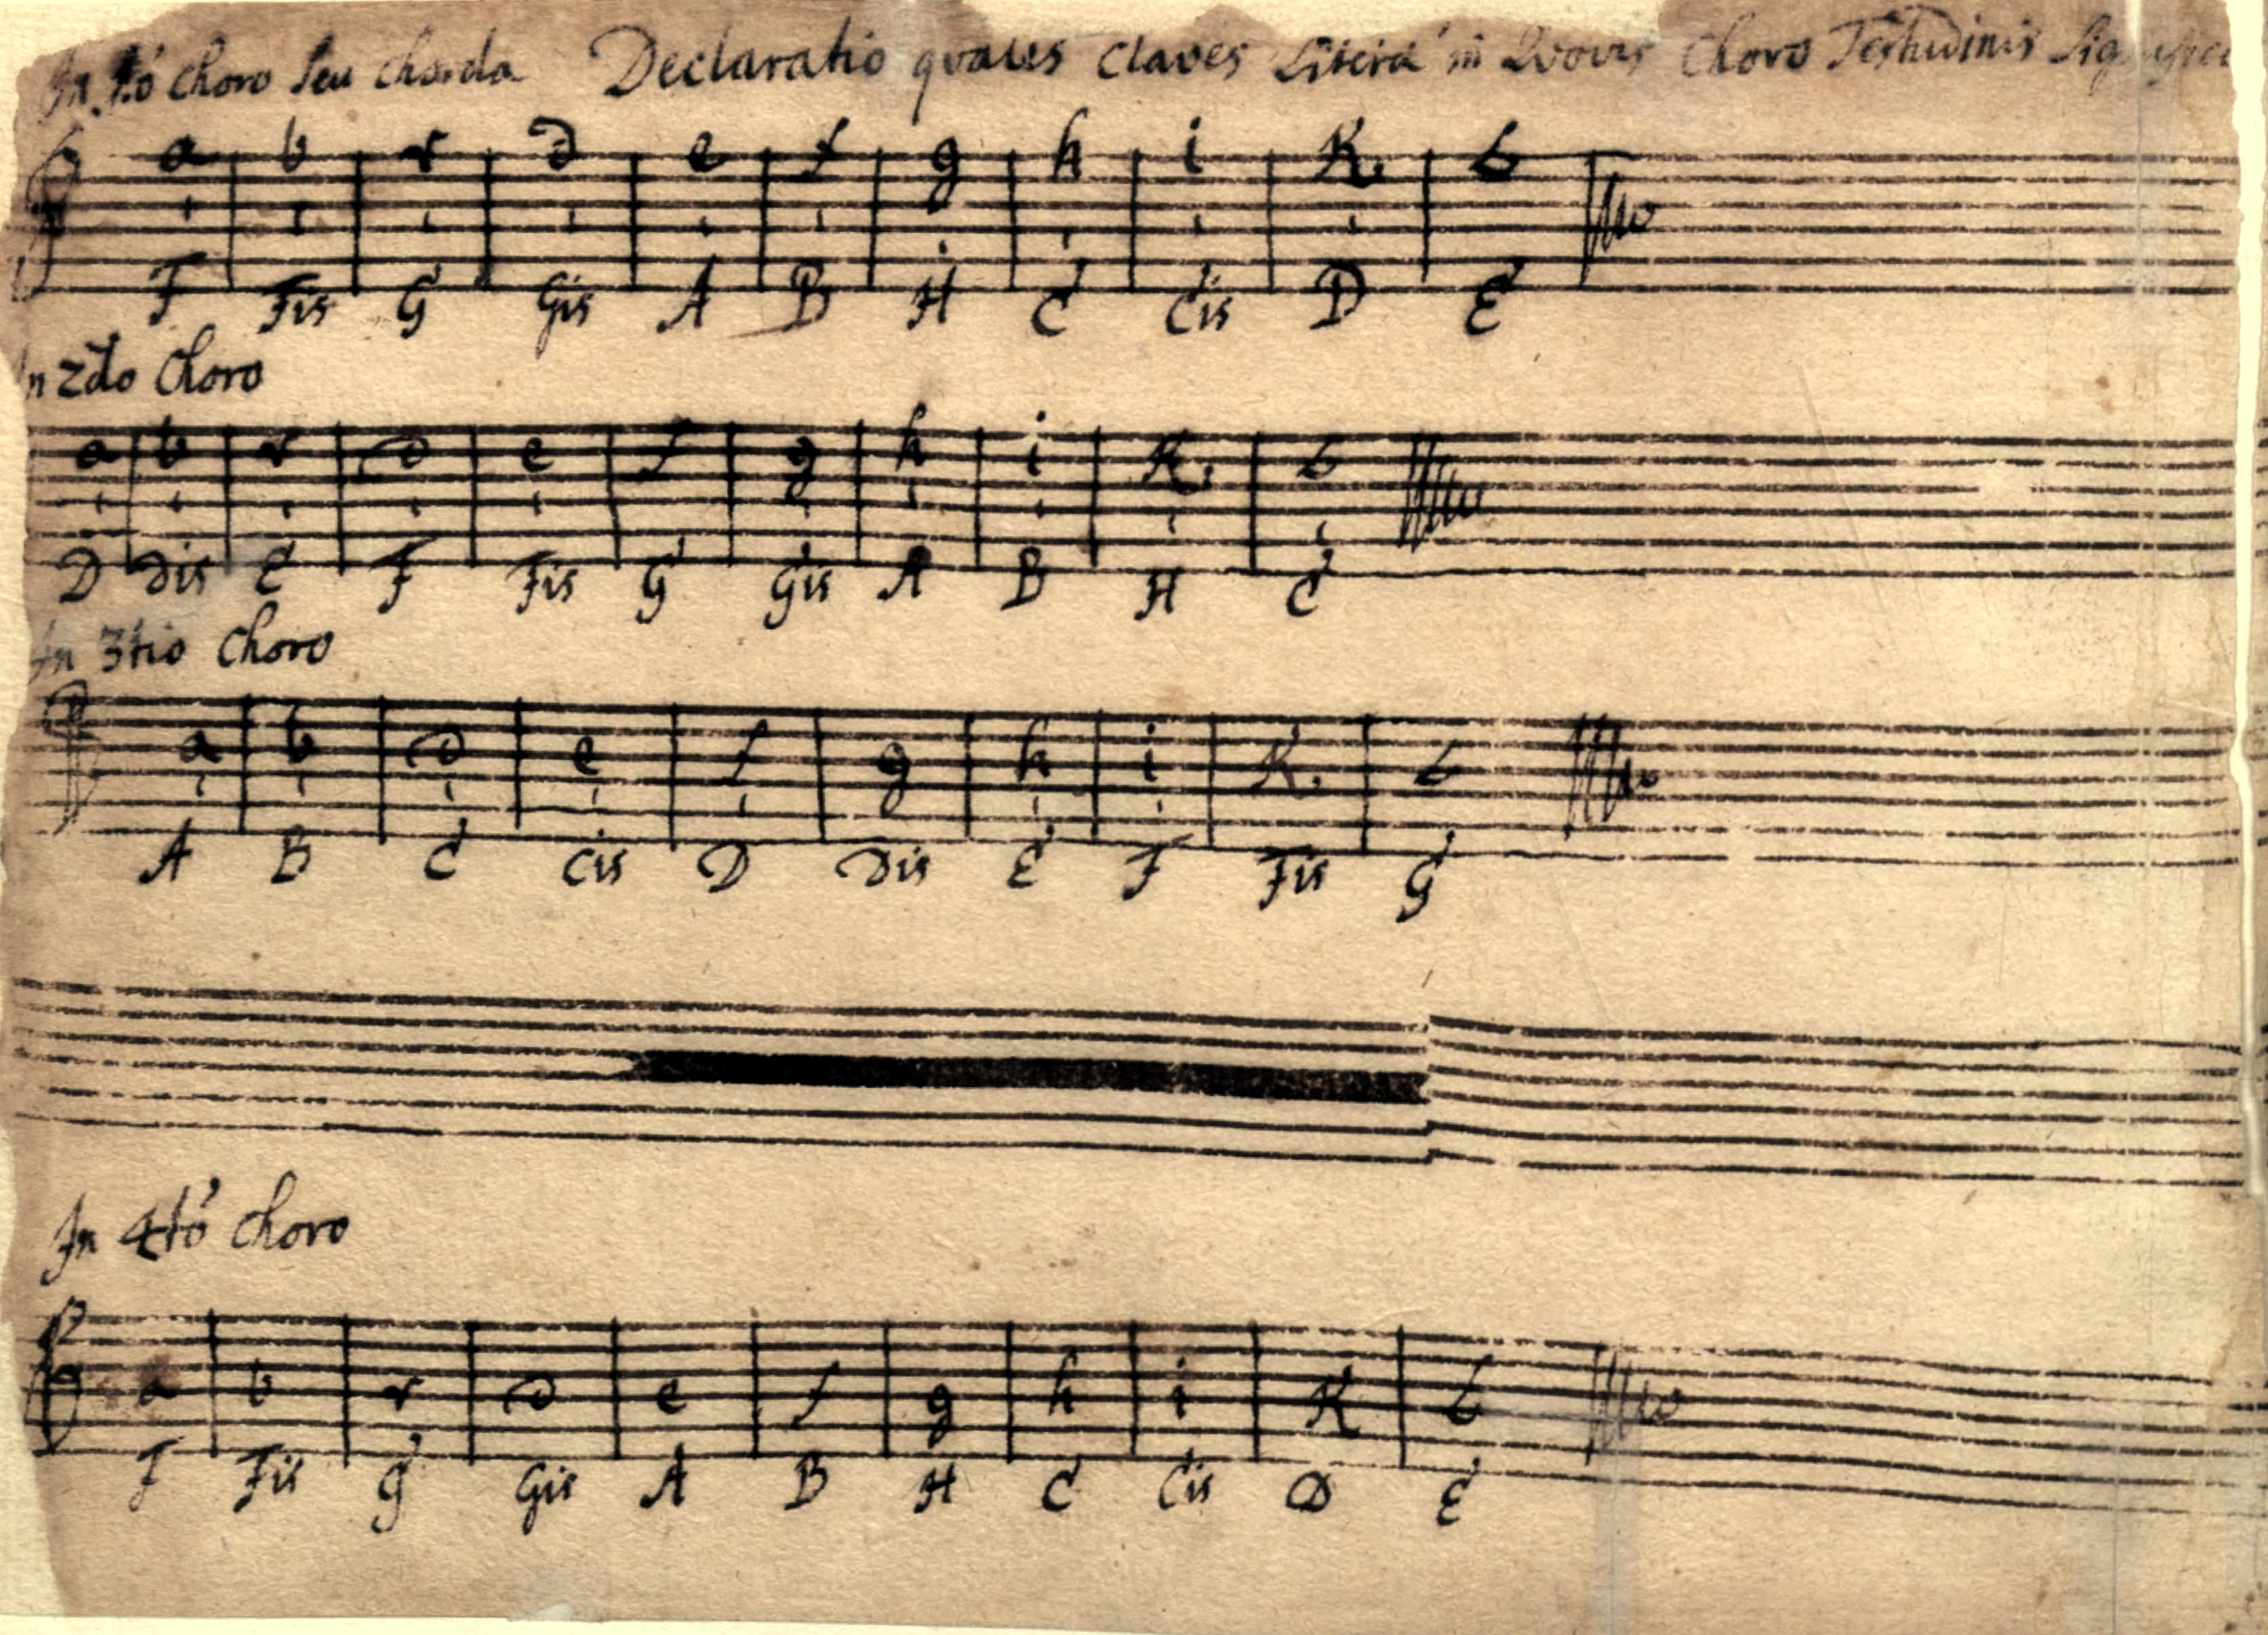 In 1.o Choro seu chorda Declaratio qvales Claves Literæ in Qvovis Choro Testudinis
a b r d e f g h i K. L
F Fis G Gis A B H C Cis D E
In 2do Choro
a b r d e f g h i K. L
D Dis E F Fis G Gis A B H C
In 3tio Choro
a b d e f g h i K. L
A B C Cis D Dis E F Fis G
In 4to Choro
a b r d e f g h i K L
F Fis G Gis A B H C Cis D E